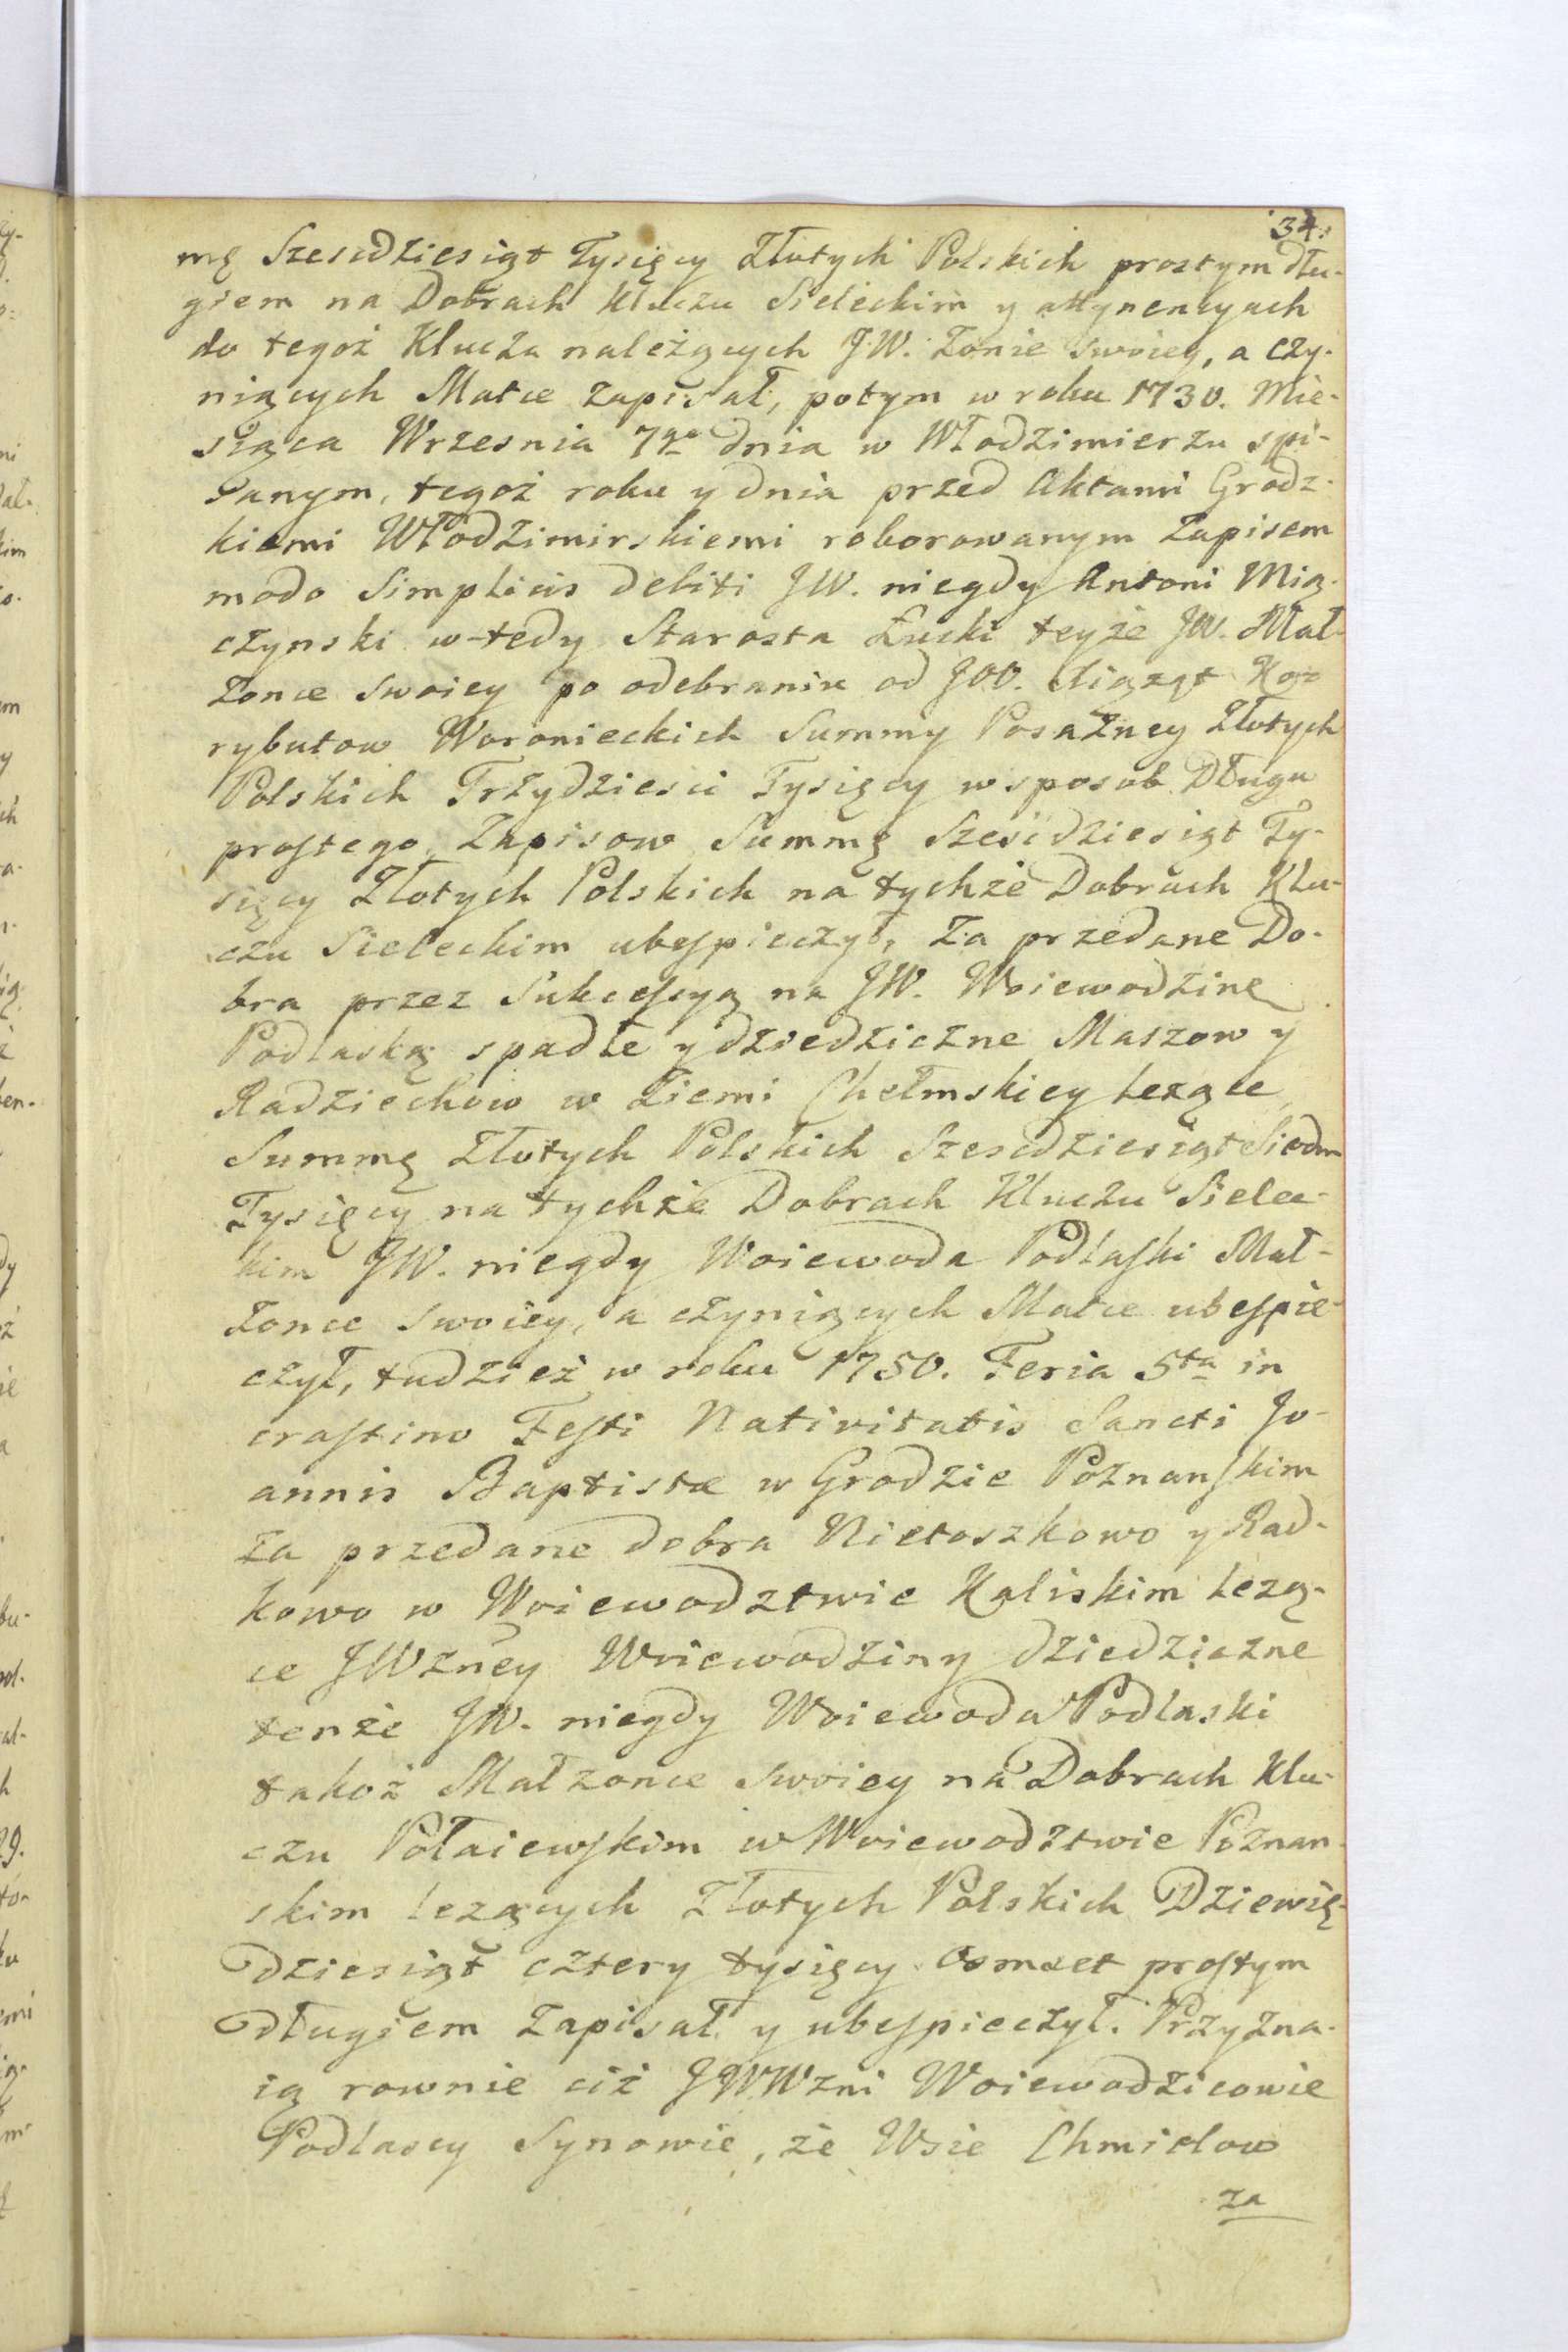 34.
mę Szescdziesiąt Tysięcy Złotych Polskich prostym dłu-
giem na Dobrach Kluczu Sieleckim y attynencyach
do tegoż Klucza należących J.W. Zonie swoiey, a czy-
niących Matce zapisał, potym w roku 1730. Mie-
siąca Wrzesnia 7go dnia w Włodzimierzu spi-
sanym, tegoż roku y dnia przed Aktami Grodz-
kiemi Włodzimirskiemi roborowanym Zapisem
modo Simplicis debiti JW. niegdy Antoni Mią-
czynski w-tedy Starosta Łucki teyże JW. Mał-
zonce swoiey po odebraniu od JOO. Xiążąt Ko-
rybutow Woronieckich Summy Posażney Złotych
Polskich Trzydziesci Tysięcy w sposob Długu
prostego Zapisow Summę Sześćdziesiąt Ty-
sięcy Złotych Polskich na tychże Dobrach Klu-
czu Sieleckim ubespieczył, Za przedane Do-
bra przez Sukcessyą na JW. Woiewodzinę
Podlaską spadłe y dziedziczne Maszow y
Radziechow w Ziemi Chełmskiey leżące
Summę Złotych Polskich Szescdziesiąt Siedm
Tysięcy na tychże Dobrach Kluczu Sielec-
kim JW. niegdy Woiewoda Podlaski Mał-
zonce swoiey, a czyniących Matce ubespie-
czył, tudzież w roku 1750. Feria 5ta in
crastino Festi Nativitatis Sancti Jo-
annis Baptistæ w Grodzie Poznanskim
za przedane dobra Nietaszkowo y Rad-
kowo w Woiewodztwie Kaliskim lezą-
ce JWzney Woiewodziny dziedziczne
tenże JW. niegdy Woiewoda Podlaski
takoż Małzonce swoiey na Dobrach Klu-
czu Połaiewskim w Woiewodztwie Poznan-
skim lezących Złotych Polskich Dziewię-
dziesiąt cztery tysięcy osmset prostym
długiem zapisał y ubespieczył. Przyzna-
ią rownie ciż JWWzni Woiewodzicowie
Podlascy Synowie, że Wsie Chmielow
za